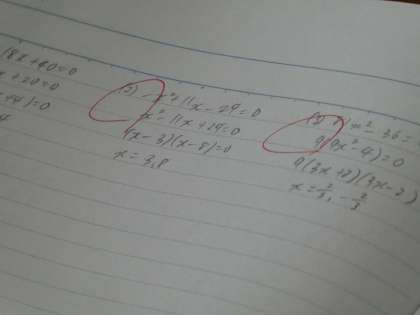 18x+40=0
x+20=0
+4)=0
4
(5) -x²+11x-24=0
x²-11x+24=0
(x-3)(x-8)=0
x=3,8
x²-36=
9(9x²-4)=0
9(3x+2)(3x-2)
x=2/3, -2/3